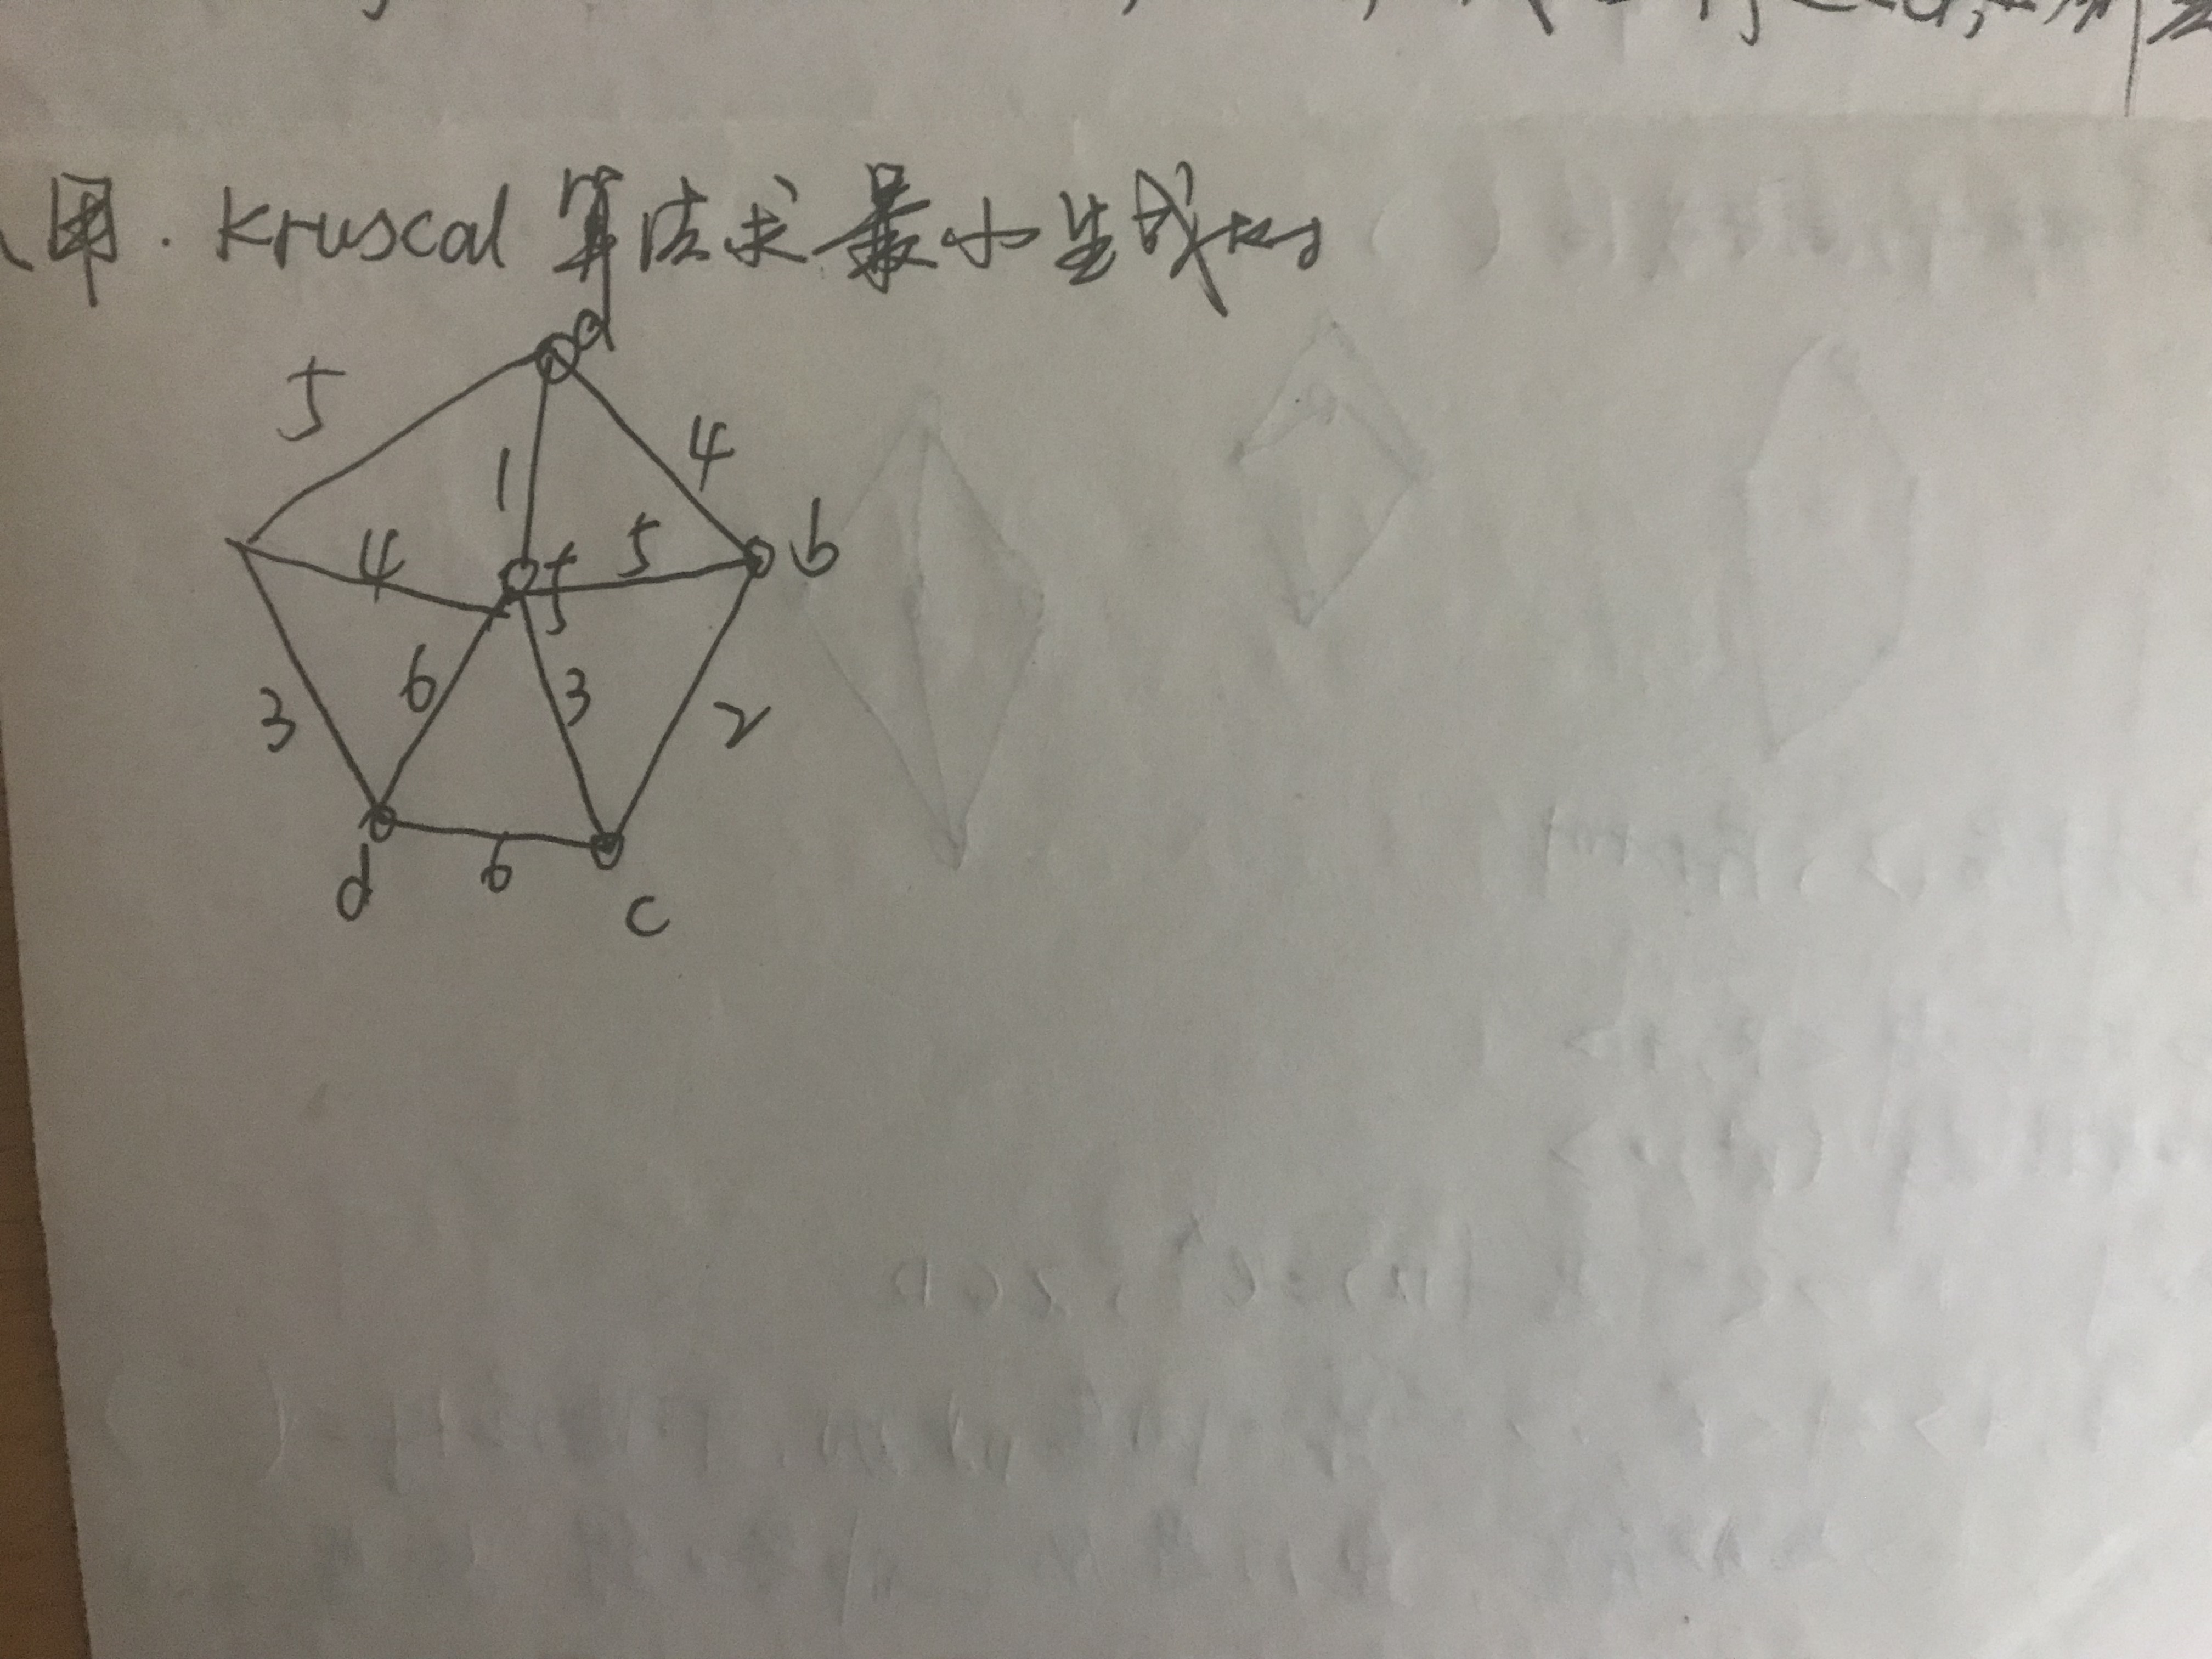 用. Kruscal 算法求最小生成树
a
5
4
1
b
4
f
5
6
3
3
2
d
6
c